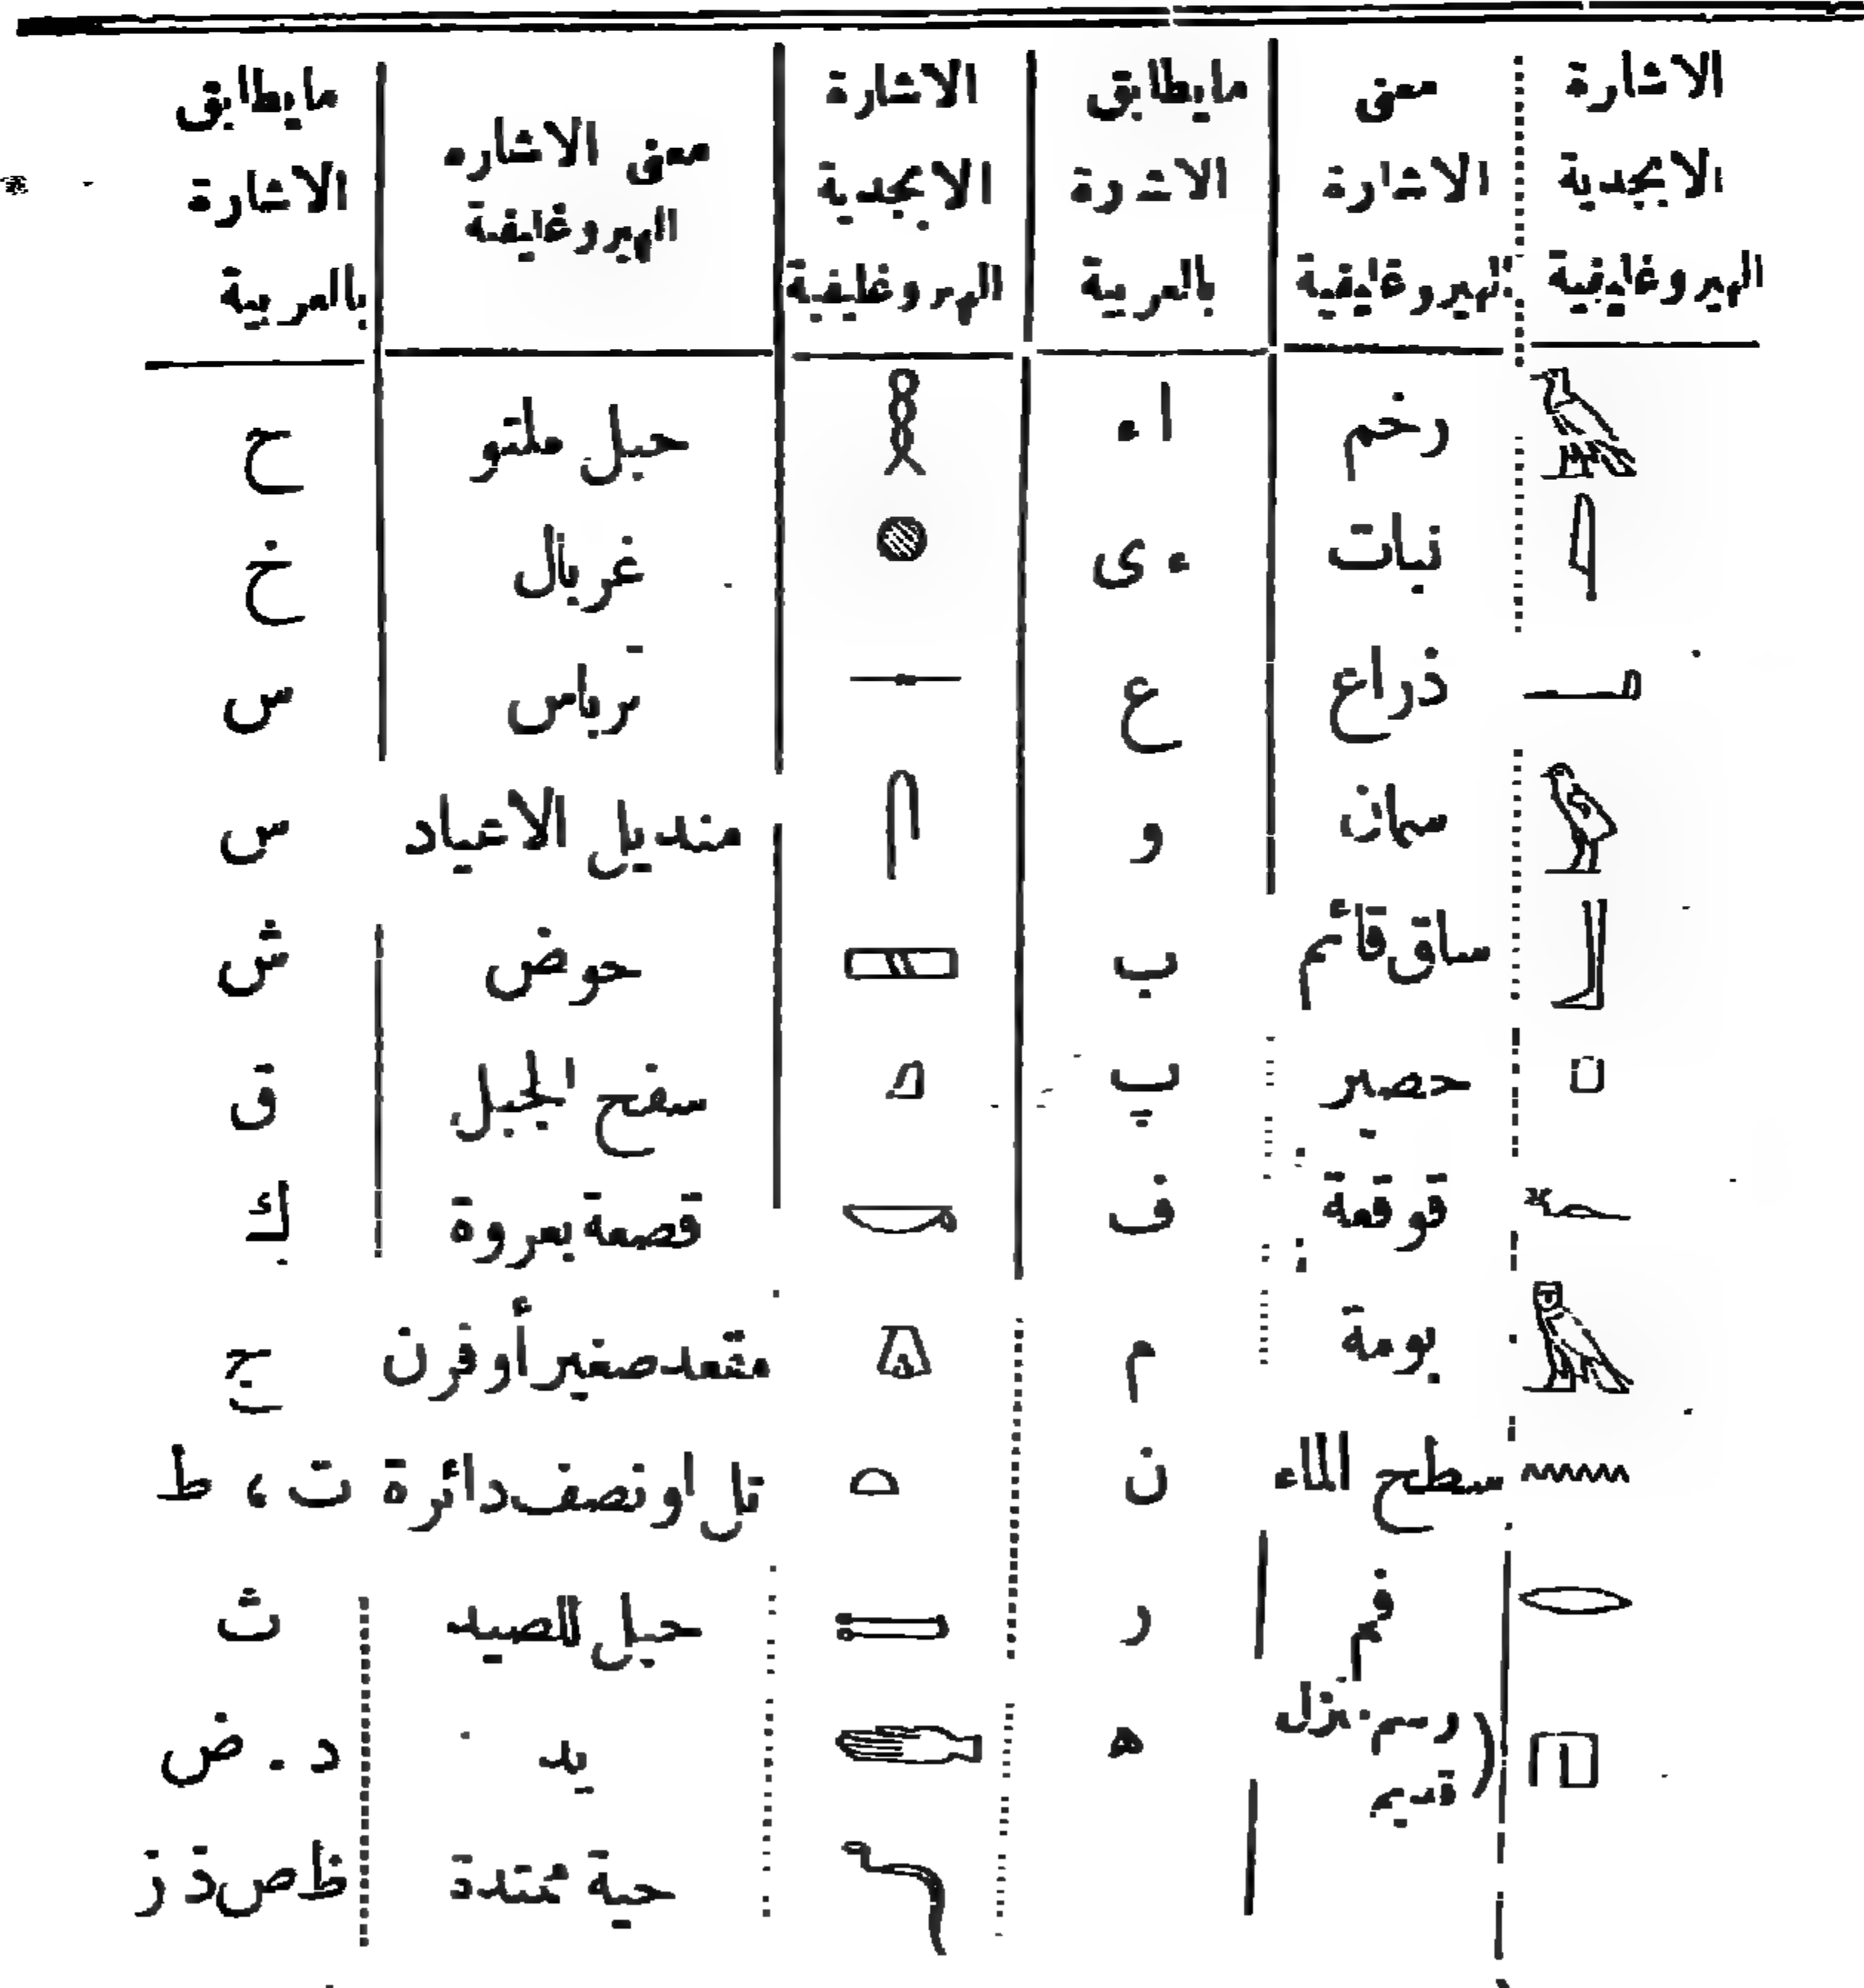 الاشارة الابجدية الهيروغليفية | معنى الاشارة الهيروغليفية | مايطابق الاشرة بالعربية | الاشارة الابجدية الهيروغليفية | معنى الاشاره الهيروغليفية | مايطابق الاشارة بالعربية
𓄿 | رخم | ا ء | 𓎛 | حبل ملتو | ح
𓇋 | نبات | ء ى | 𓐍 | غربال | خ
𓂝 | ذراع | ع | 𓊃 | ترباس | س
𓅱 | سمان | و | 𓋴 | منديل الاعياد | س
𓃀 | ساق قائم | ب | 𓈙 | حوض | ش
𓊪 | حصير | پ | 𓈎 | سفح الجبل | ق
𓆑 | قوقعة | ف | 𓎡 | قصعة بعروة | ك
𓅓 | بومة | م | 𓎼 | مقعد صغير أو فرن | ج
𓈖 | سطح الماء | ن | 𓏏 | تل او نصف دائرة | ت ، ط
𓂋 | فم | ر | 𓍿 | حبل للصيد | ث
𓉔 | (رسم منزل قديم | ه | 𓂧 | يد | د . ض
𓆓 | حية ممتدة | ظ ص ذ ز